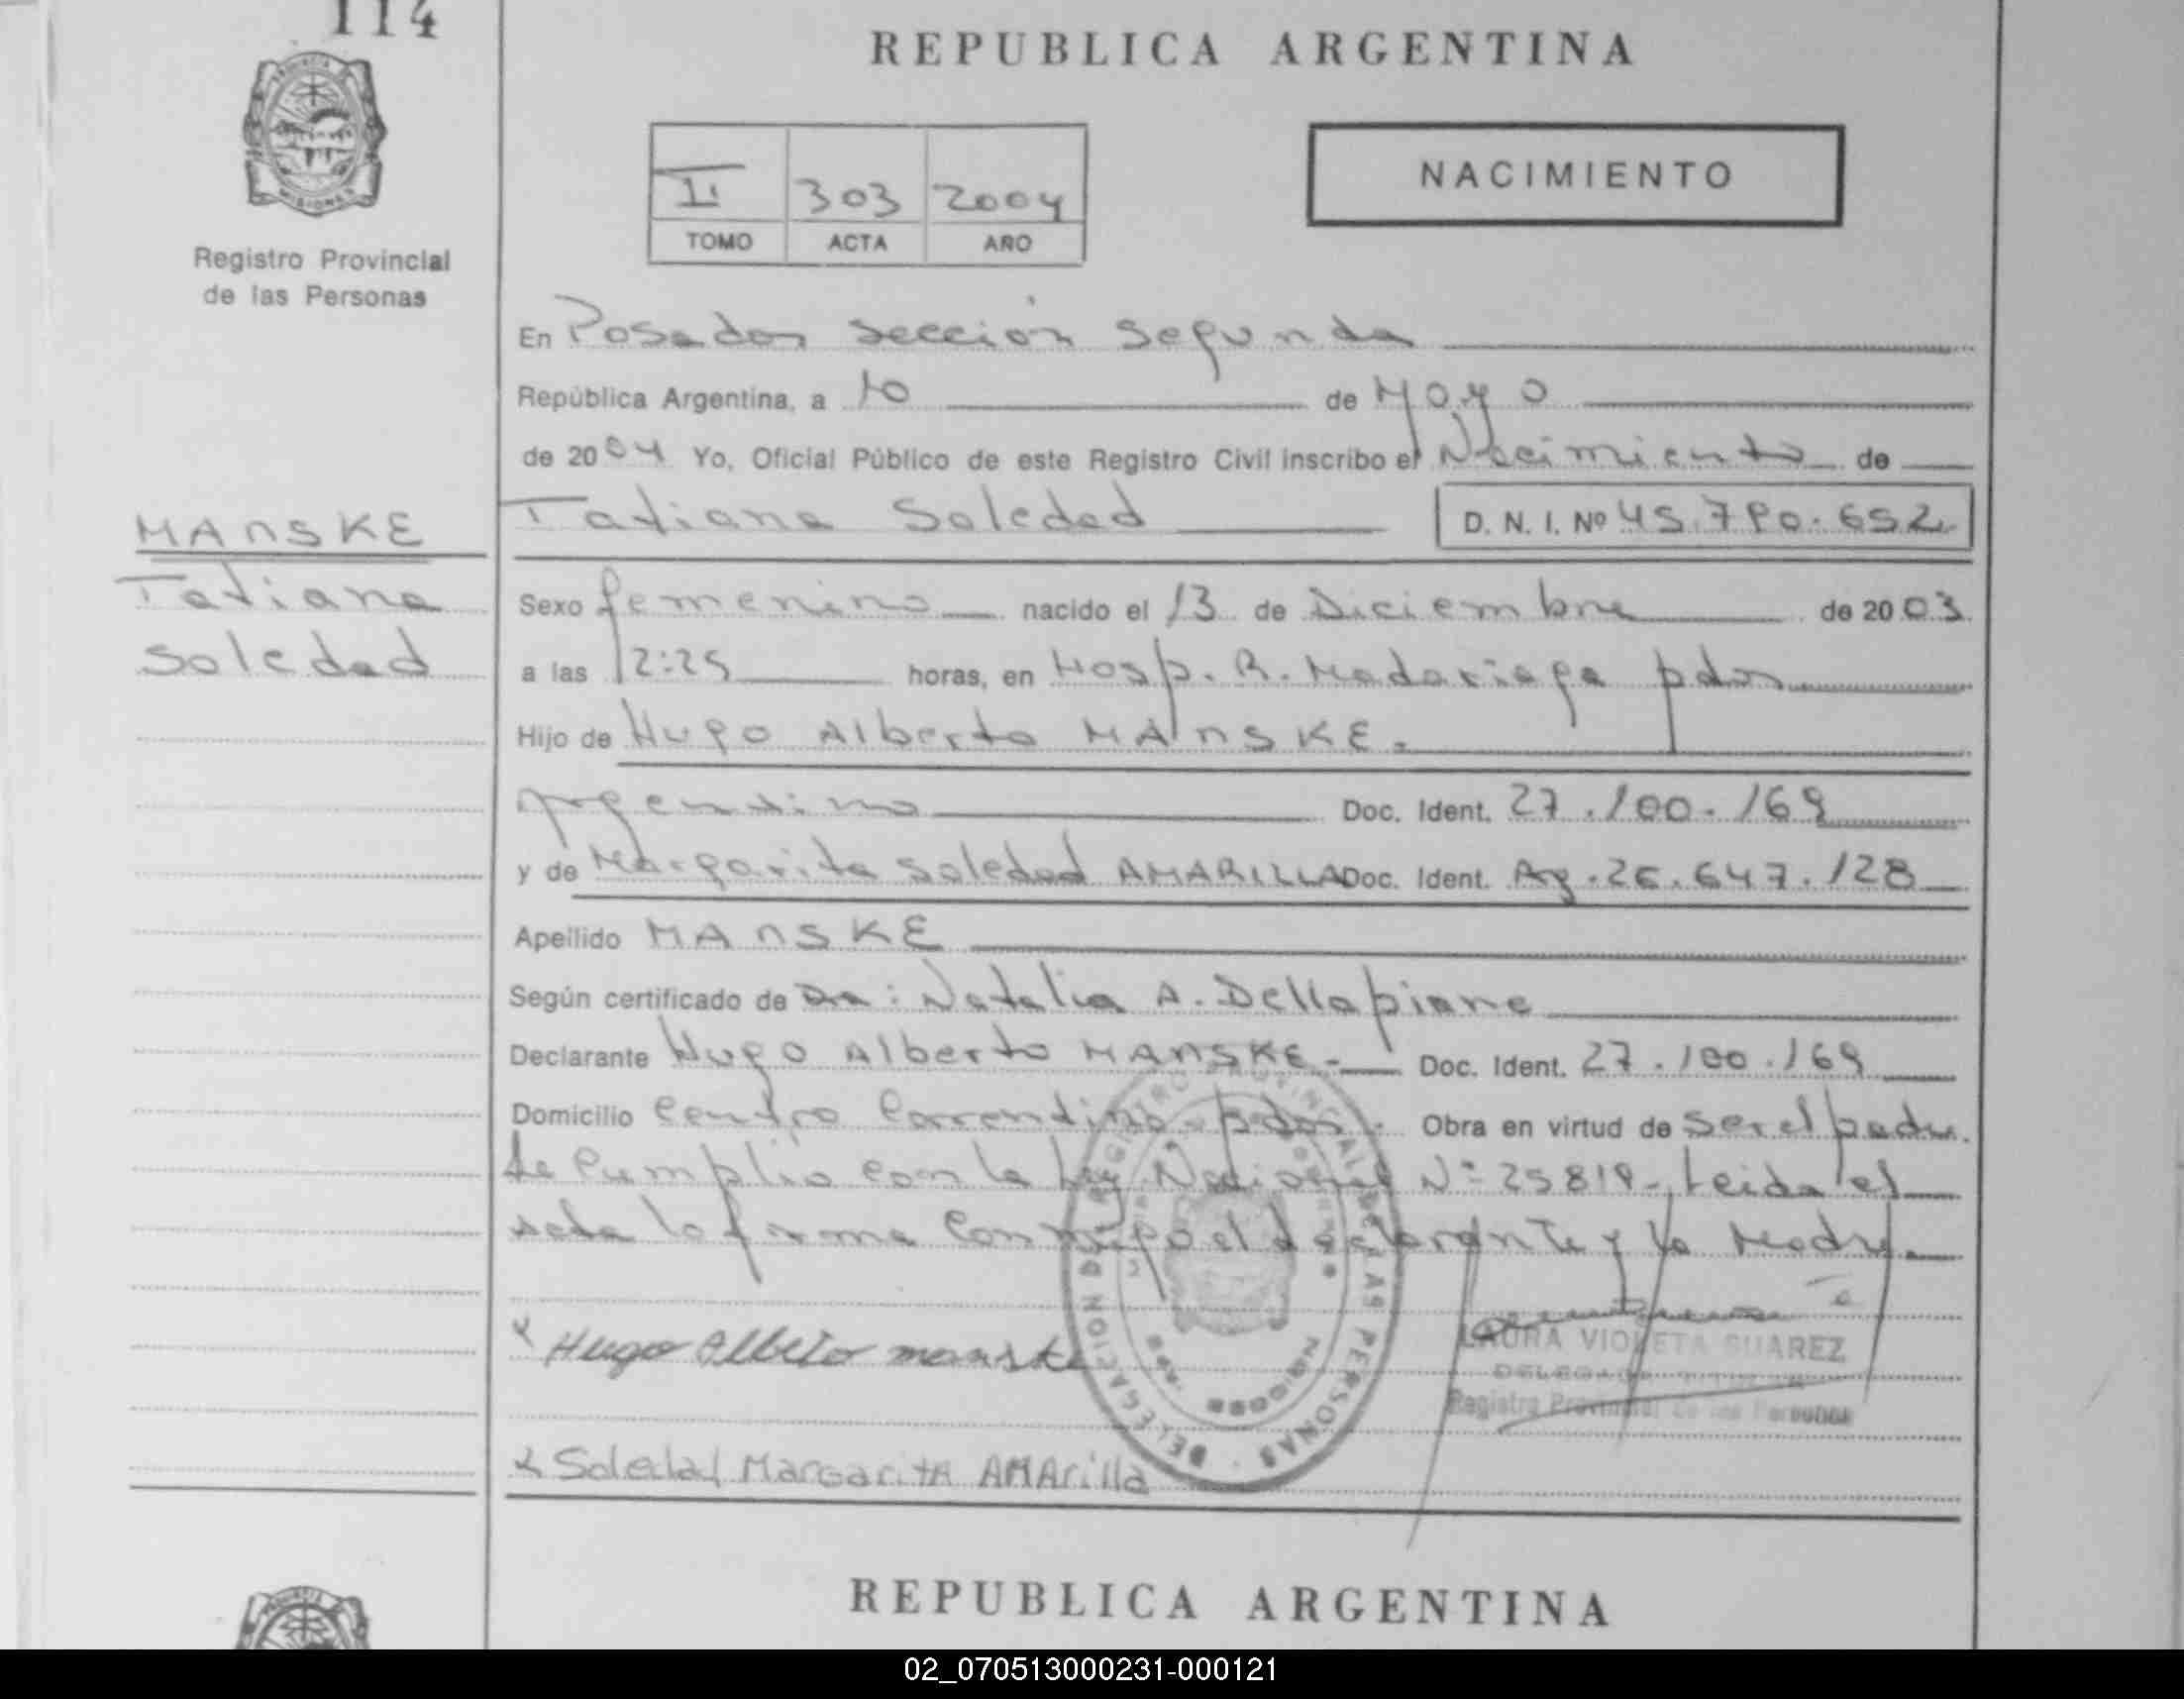 114
REPUBLICA ARGENTINA
NACIMIENTO
II 303 2004
TOMO ACTA AÑO
Registro Provincial
de las Personas
En Posadas sección segunda
República Argentina, a 10 de Mayo
de 2004 Yo, Oficial Público de este Registro Civil inscribo el Nacimiento de
MANSKE
Tatiana
Soledad
Tatiana Soledad D. N. I. Nº 45.790.652
Sexo femenino nacido el 13 de Diciembre de 2003
a las 12:25 horas, en Hosp. R. Madariaga pdas
Hijo de Hugo Alberto MANSKE.
Argentino Doc. Ident. 27.100.169
y de Margarita Soledad AMARILLA Doc. Ident. Arg. 26.647.128
Apellido MANSKE
Según certificado de Dra: Natalia A. Dellapiane
Declarante Hugo Alberto MANSKE.- Doc. Ident. 27.100.169
Domicilio Centro Correntino - pdas. Obra en virtud de ser el padre.
Se Cumplió con la Ley Nacional Nº 25819-, Leida el
acta la firma Conmigo el declarante y la Madre.
x Hugo Alberto manske
LAURA VIOLETA SUAREZ
Registro Provincial de las Personas
x Soledad Margarita AMArilla
REGISTRO PROVINCIAL DE LAS PERSONAS
DELEGACION
REPUBLICA ARGENTINA
02_070513000231-000121